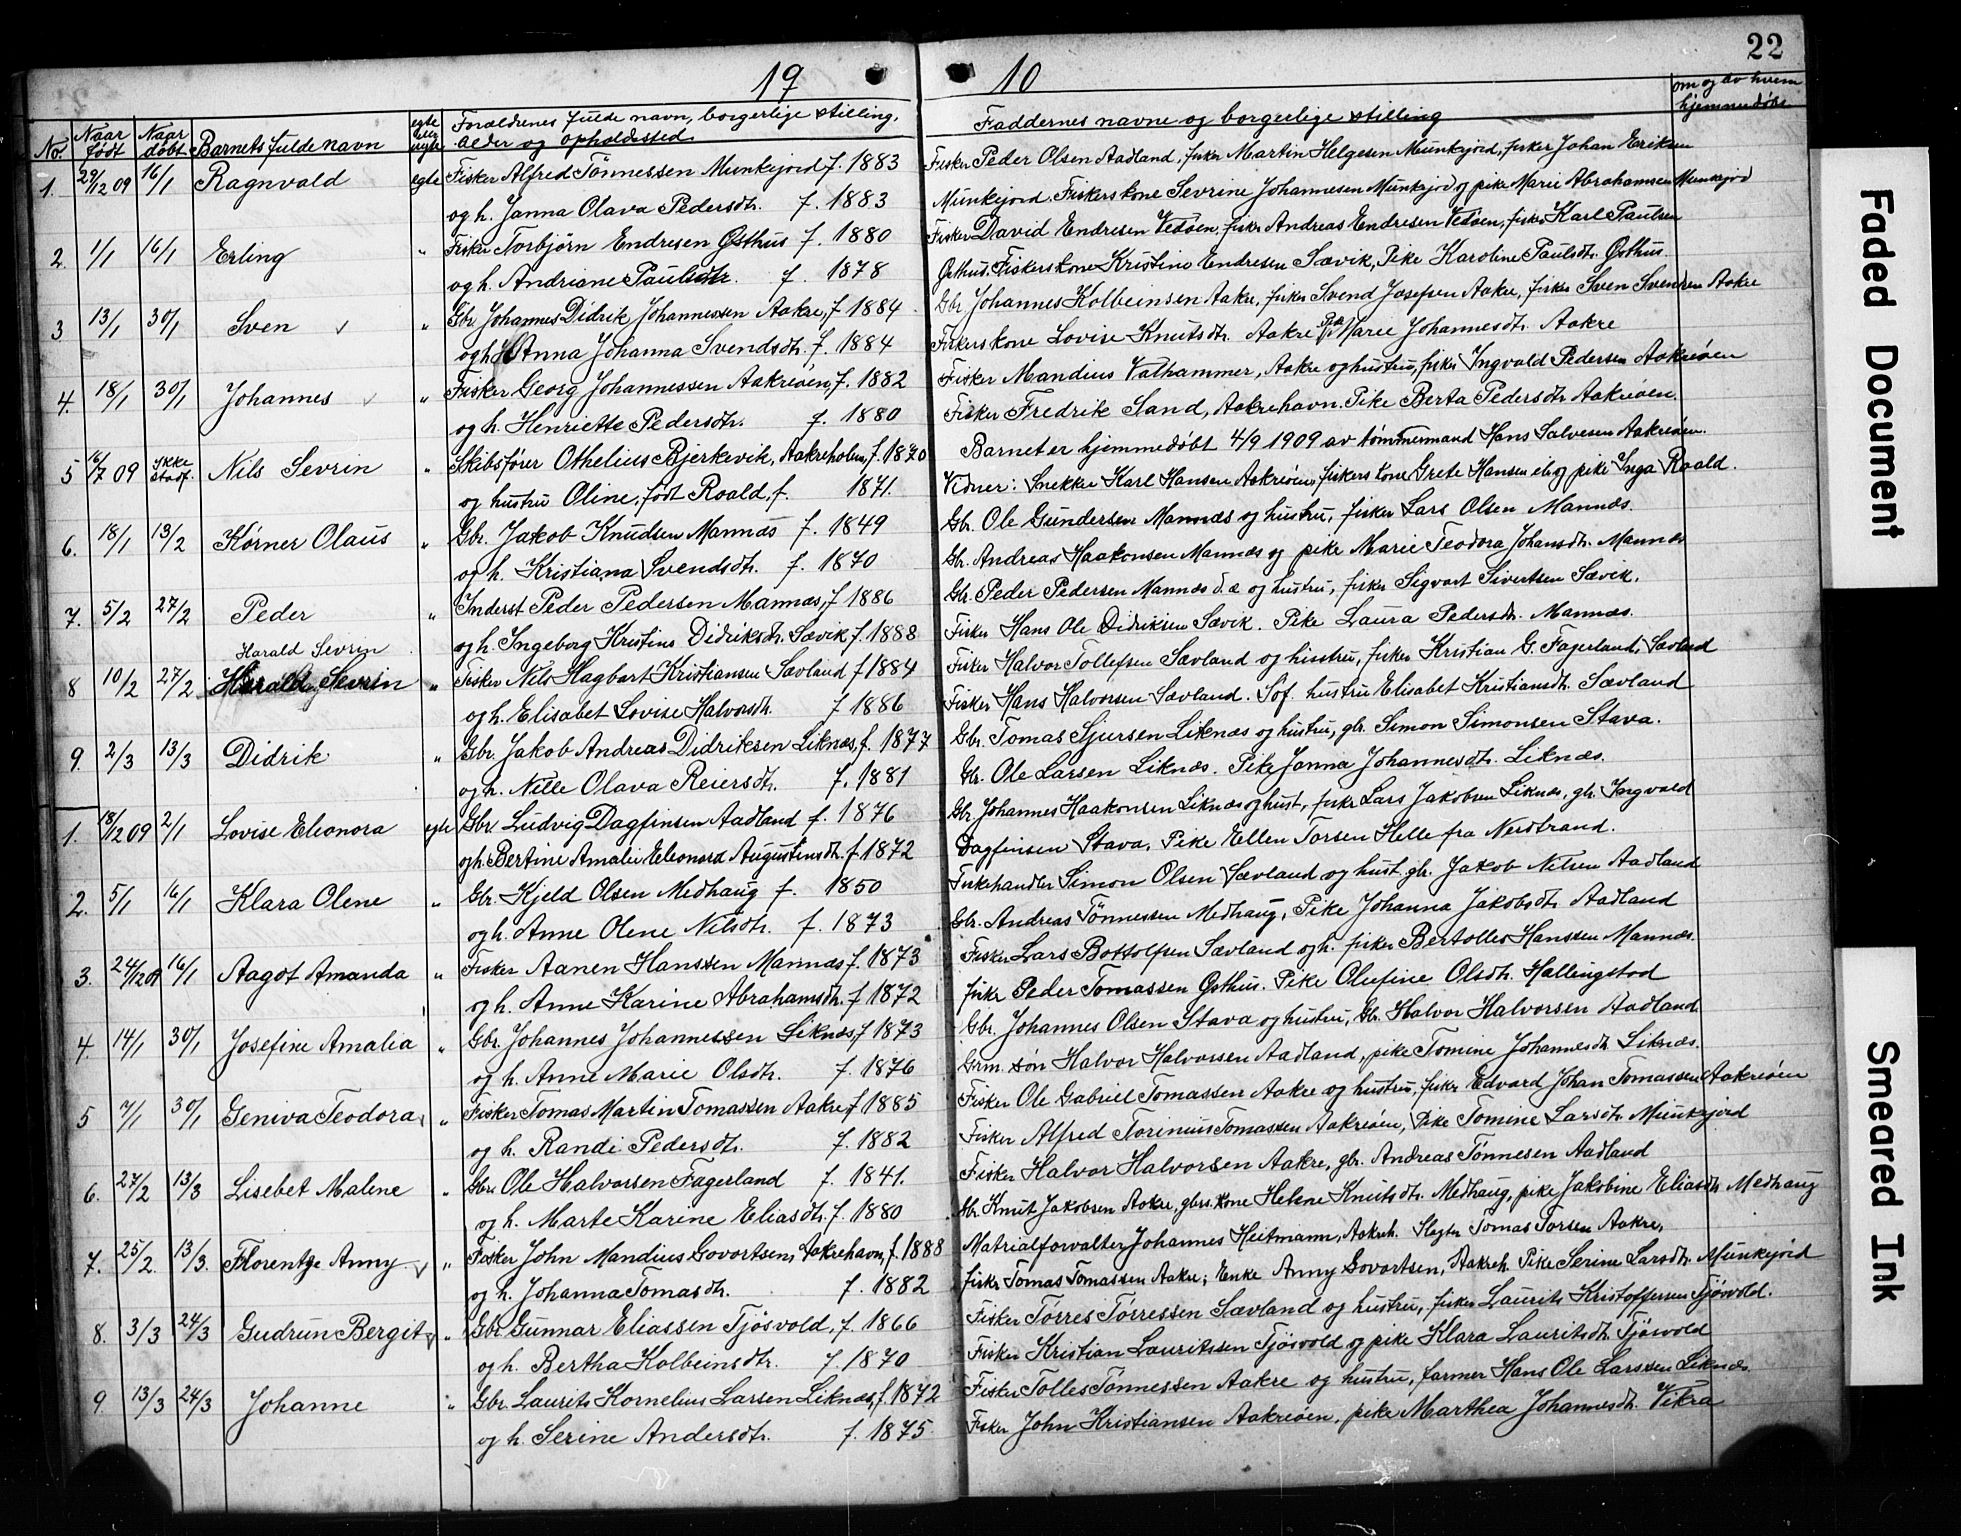 19 10 22
No. Naar født Naar døbt Barnets fulde navn egte uegte Forældrenes fulde navn, borgerlige stilling, alder og opholdssted Faddernes navne og borgerlige stilling om og av hvem hjemmedøbt
1. 29/12 09 16/1 Ragnvald egte Fisker Alfred Tönnessen Munkejord f. 1883 Fisker Peder Olsen Aadland, fisker Martin Helgesen Munkejord, fisker Johan Eriksen
og h. Janna Olava Pedersdtr. f. 1883 Munkejord. Fiskerskone Sevrine Johannesen Munkejord og pike Marie Abrahamsen Munkejord
2. 1/1 16/1 Erling " Fisker Torbjörn Endresen Østhus f. 1880 Fisker David Endresen Vedøen, fisker Andreas Endresen Vedøen, fisker Karl Paulsen
og h. Andriane Paulsdtr. f. 1878 Østhus. Fiskerskone Kristine Endresen Sævik, Pike Karoline Paulsdtr. Østhus.
3 13/1 30/1 Sven " Gbr. Johannes Didrik Johannessen Aakre, f 1884 Gbr. Johannes Kolbeinsen Aakre, fisker Svend Josefsen Aakre, fisker Sven Svendsen Aakre
og h. Anna Johanna Svendsdtr. f. 1884 Fiskerskone Lovise Knutsdtr. Aakre Pike Marie Johannesdtr. Aakre
4. 18/1 30/1 Johannes " Fisker Georg Johannessen Aakreøen, f. 1882 Fisker Mandius Valhammer, Aakre og hustru, fisker Ingvald Pedersen Aakreøen
og h. Henriette Pedersdtr. f. 1880 Fisker Fredrik Sand, Aakrehavn. Pike Berta Pedersdtr Aakreøen.
5 6/7 09 Ikke stadf. Nils Sevrin " Skibsfører Othelius Bjerkevik, Aakreholm, f. 1870 Barnet er hjemmedøbt 4/9 1909 av tømmermand Hans Salvesen Aakreøen.
og hustru Oline, født Roald, f. 1871. Vidner: Snekker Karl Hansen Aakreøen, fiskerskone Grete Hansen og pike Inga Roald.
6. 18/1 13/2 Körner Olaus " Gbr. Jakob Knudsen Mannæs f. 1849 Gbr. Ole Gundersen Mannæs og hustru, fisker Lars Olsen Mannæs.
og h. Kristiana Svendsdtr. f. 1870 Gbr. Andreas Haakonsen Mannæs og pike Marie Teodora Johansdtr. Mannæs
7. 5/2 27/2 Peder " Inderst Peder Pedersen Mannæs, f 1886 Gbr. Peder Pedersen Mannæs d. æ. og hustru, fisker Sigvart Sivertsen Sævik.
og h. Ingeborg Kristine Didriksdtr. Sævik f. 1888 Fisker Hans Ole Didriksen Sævik. Pike Laura Pedersdtr. Mannæs.
Harald Sevrin
8 10/2 27/2 Harald Sevrin " Fisker Nils Hagbart Kristiansen Sævland f 1884 Fisker Halvor Tollefsen Sævland og hustru, fisker Kristian G. Fagerland, Sævland
og h. Elisabet Lovise Halvorsdtr. f 1886 Fisker Hans Halvorsen Sævland. Sof. hustru Elisabet Kristiansdtr. Sævland
9. 2/3 13/3 Didrik " Gbr. Jakob Andreas Didriksen Liknæs, f. 1877 Gbr. Tomas Sjursen Liknæs og hustru, gbr. Simon Simonsen Stava.
og h. Nille Olava Reiersdtr. f. 1881 Gbr. Ole Larsen Liknæs. Pike Janna Johannesdtr. Liknæs.
1. 18/12 09 2/1 Lovise Eleonora egte Gbr Ludvig Dagfinsen Aadland f. 1876 Gbr. Johannes Haakonsen Liknæs og hust, fisker Lars Jakobsen Liknæs, gbr. Ingvald
og h. Bertine Amalie Eleonord Augustinsdtr. f. 1872 Dagfinsen Stava, Pike Ellen Torsen Helle fra Nerstrand.
2. 5/1 16/1 Klara Olene " Gbr. Kjeld Olsen Medhaug f. 1850 Fiskehandler Simon Olsen Sævland og hust. gbr. Jakob Nilsen Aadland
og h. Anne Olene Nilsdtr. f. 1873 Gbr. Andreas Tönnessen Medhaug, Pike Johanna Jakobsdtr Aadland
3. 24/12 09 16/1 Aagot Amanda " Fisker Aanen Hanssen Mannæs f. 1873 Fisker Lars Bottolfsen Sævland og h. fisker Bertolles Hanssen Mannæs
og h. Anne Karine Abrahamsdtr. f 1872 fisker Peder Tomassen Østhus. Pike Olufine Olsdtr. Hallingstad
4. 14/1 30/1 Josefine Amalia " Gbr. Johannes Johannessen Liknæs, f 1873 Gbr. Johannes Olsen Stava og hustru, Gbr. Halvor Halvorsen Aadland.
og h. Anne Marie Olsdtr. f. 1876 Grm. søn Halvor Halvorsen Aadland, pike Tomine Johannesdtr Liknæs.
5 7/1 30/1 Geniva Teodora " Fisker Tomas Martin Tomassen Aakre, f 1885 Fisker Ole Gabriel Tomassen Aakre og hustru, fisker Edvard Johan Tomassen Aakreøen
og h. Randi Pedersdtr. f. 1882 Fisker Alfred Torenius Tomassen Aakreøen, Pike Tomine Larsdtr Munkejord
6. 27/2 13/3 Lisebet Malene " Gbr. Ole Halvorsen Fagerland f. 1841. Fisker Halvor Halvorsen Aakre, gbr. Andreas Tönnesen Aadland
og h. Marte Karine Eliasdtr. f. 1880 Gbr. Knut Jakobsen Aakre, gbrs. kone Helene Knutsdtr. Medhaug, pike Jakobine Eliasdtr Medhaug
7. 25/2. 13/3. Florentze Anny " Fisker John Mandius Govortsen, Aakrehavn, f. 1888 Matrialforvalter Johannes Heitmann, Aakreh. Slagter Tomas Torsen Aakre,
og h. Johanna Tomasdtr. f. 1882 fisker Tomas Tomassen Aakre, Enke Anny Govortsen, Aakreh. Pike Serine Larsdtr. Munkejord
8. 3/3 24/3 Gudrun Bergit " Gbr. Gunnar Eliassen Tjösvold, f. 1866 Fisker Törres Törressen Sævland og hustru, fisker Laurits Kristoffersen Tjösvold.
og h. Bertha Kolbeinsdtr. f. 1870 Fisker Kristian Lauritssen Tjösvold og pike Klara Lauritsdtr. Tjösvold
9. 13/3 24/3 Johanne " Gbr. Laurits Kornelius Larsen Liknæs, f. 1872 Fisker Tolles Tönnessen Aakre og hustru, farmer Hans Ole Larssen Liknæs.
og h. Serine Andersdtr. f. 1875. Fisker John Kristiansen Aakreøen, pike Marthea Johannesdtr. Vikra
Faded Document
Smeared Ink